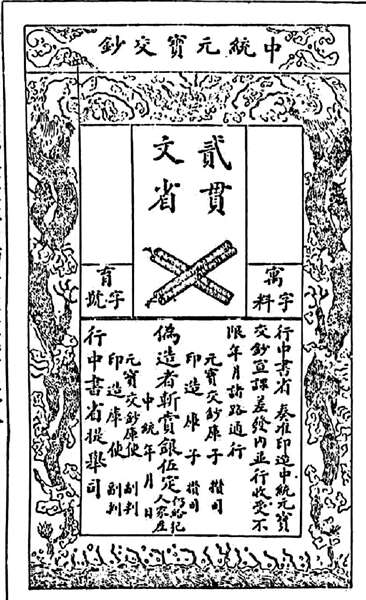 中統元寶交鈔
貳貫
文省
寓字料
育字號
行中書省 奏准印造中統元寶
交鈔宣課差發内並行收受不
限年月諸路通行
元寶交鈔庫子 攢司
印造庫子 攢司
偽造者斬賞銀伍定仍給犯人家產
中統年月日
元寶交鈔庫使 副判
印造庫使 副判
行中書省提舉司